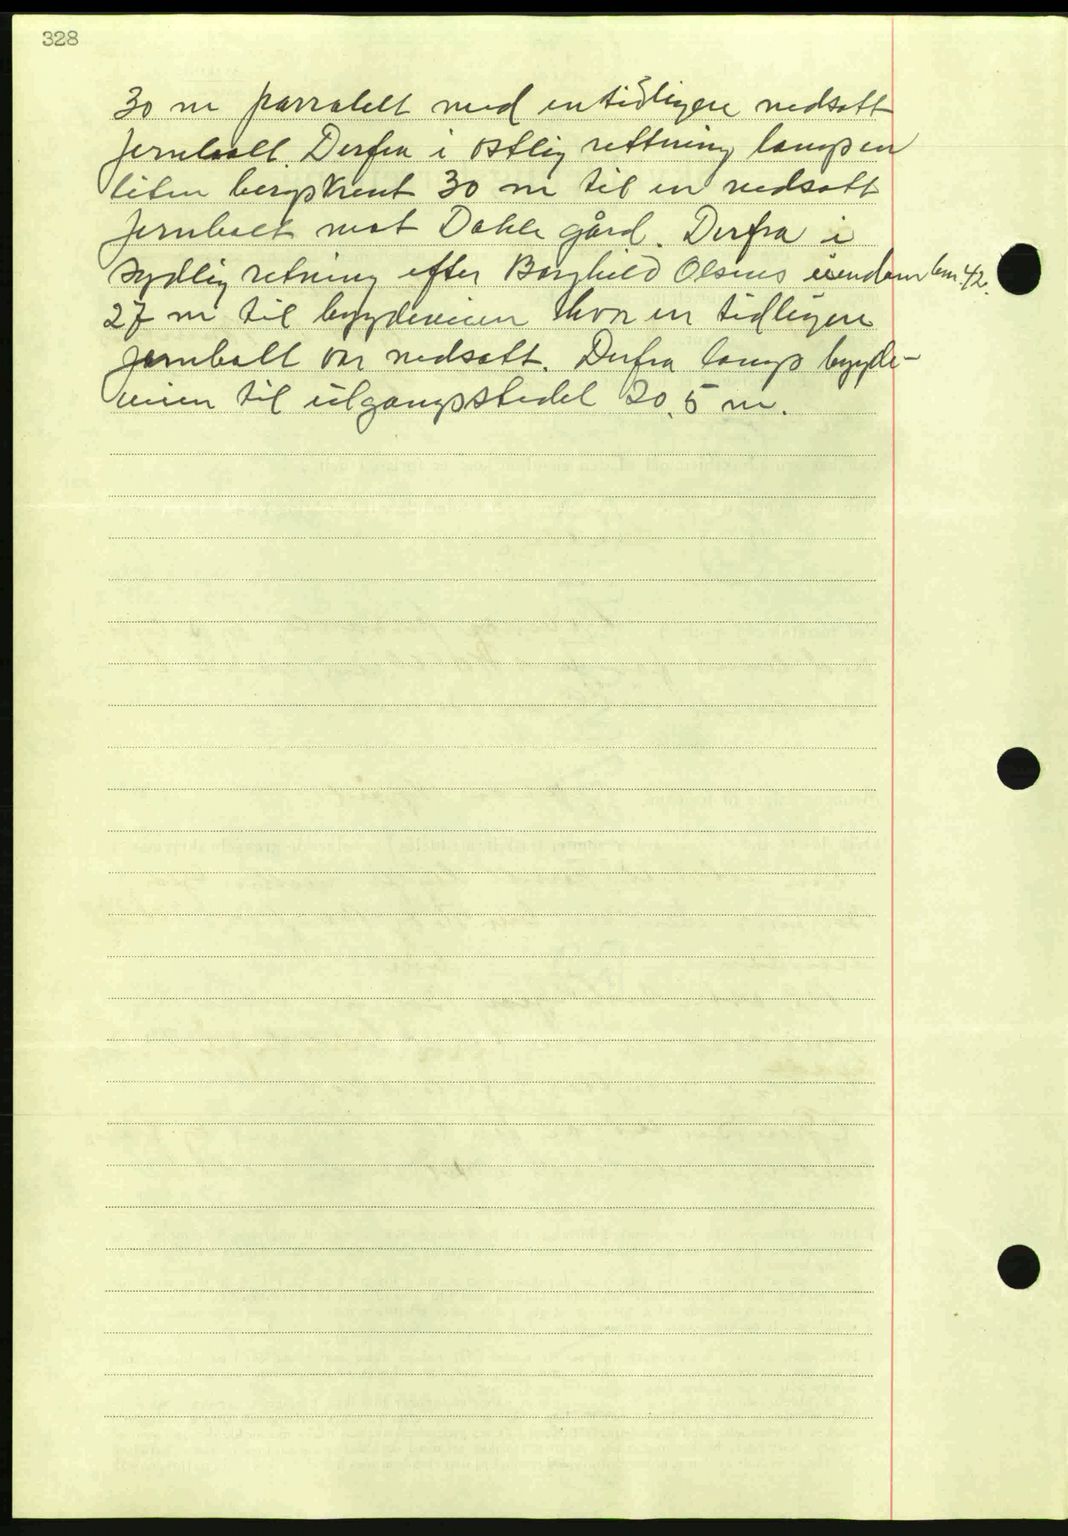 328
30 m parralelt med en tidligere nedsatt
jernbolt. Derfra i østlig rettning langs en
liten bergskrent 30 m til en nedsatt
jernbolt mot Dahle gård. Derfra i
sydlig retning efter Borghild Olsens eiendom bnr. 42.
27 m til bygdeveien hvor en tidligere
jernbolt var nedsatt. Derfra langs bygde-
veien til utgangsstedet 20,5 m.